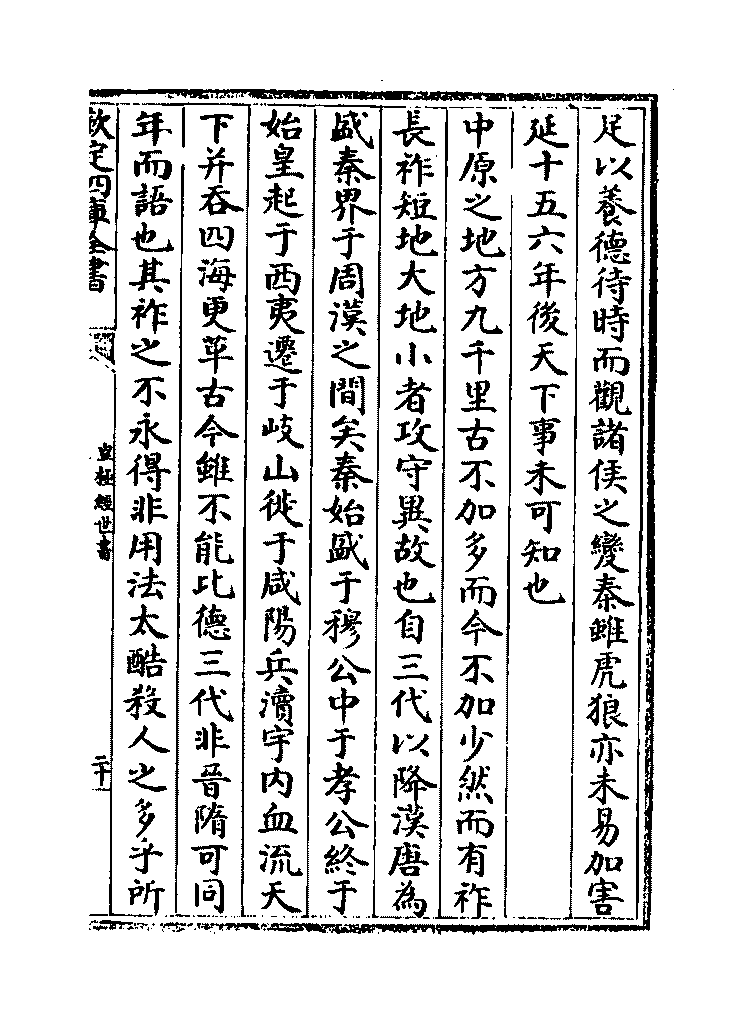 足以養德待時而觀諸侯之變秦雖虎狼亦未易加害
延十五六年後天下事未可知也
中原之地方九千里古不加多而今不加少然而有祚
長祚短地大地小者攻守異故也自三代以降漢唐為
盛秦界于周漢之間矣秦始盛于穆公中于孝公終于
始皇起于西夷遷于岐山徙于咸陽兵瀆宇内血流天
下并吞四海更革古今雖不能比德三代非晉隋可同
年而語也其祚之不永得非用法太酷殺人之多乎所
欽定四庫全書
皇極經世書
二十